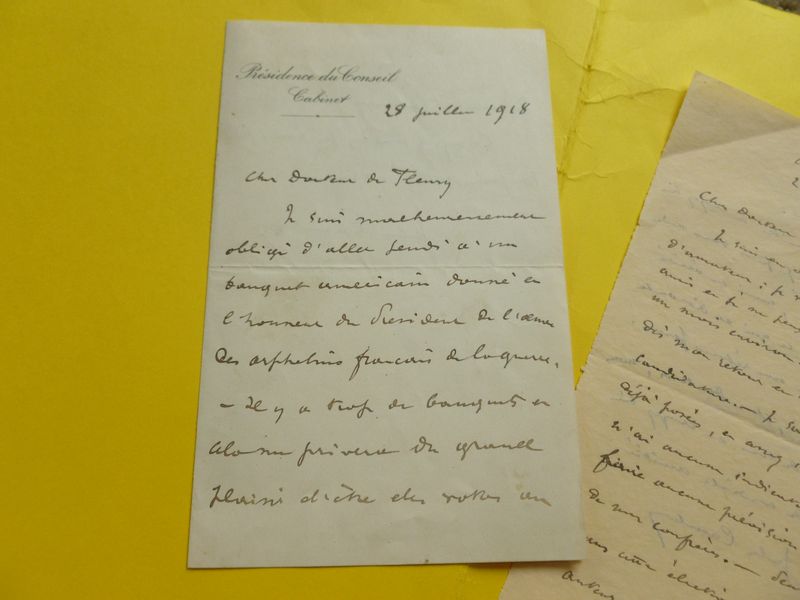 Présidence du Conseil
Cabinet
28 juillet 1918
Cher Docteur de Fleury
Je suis malheureusement
obligé d'aller jeudi à un
banquet américain donné en
l'honneur du Président de l'œuvre
des orphelins français de la guerre.
— Il y a trop de banquets et
cela me privera du grand
plaisir d'être des vôtres au
Cher Docteur
Je suis en
d'amateur : je
amis et je ne
un mois environ
dis mon retour en
candidature. — Je
déjà posées, et assez
n'ai aucune
faire aucune prévision
de mes confrères. —
une élection
auteur